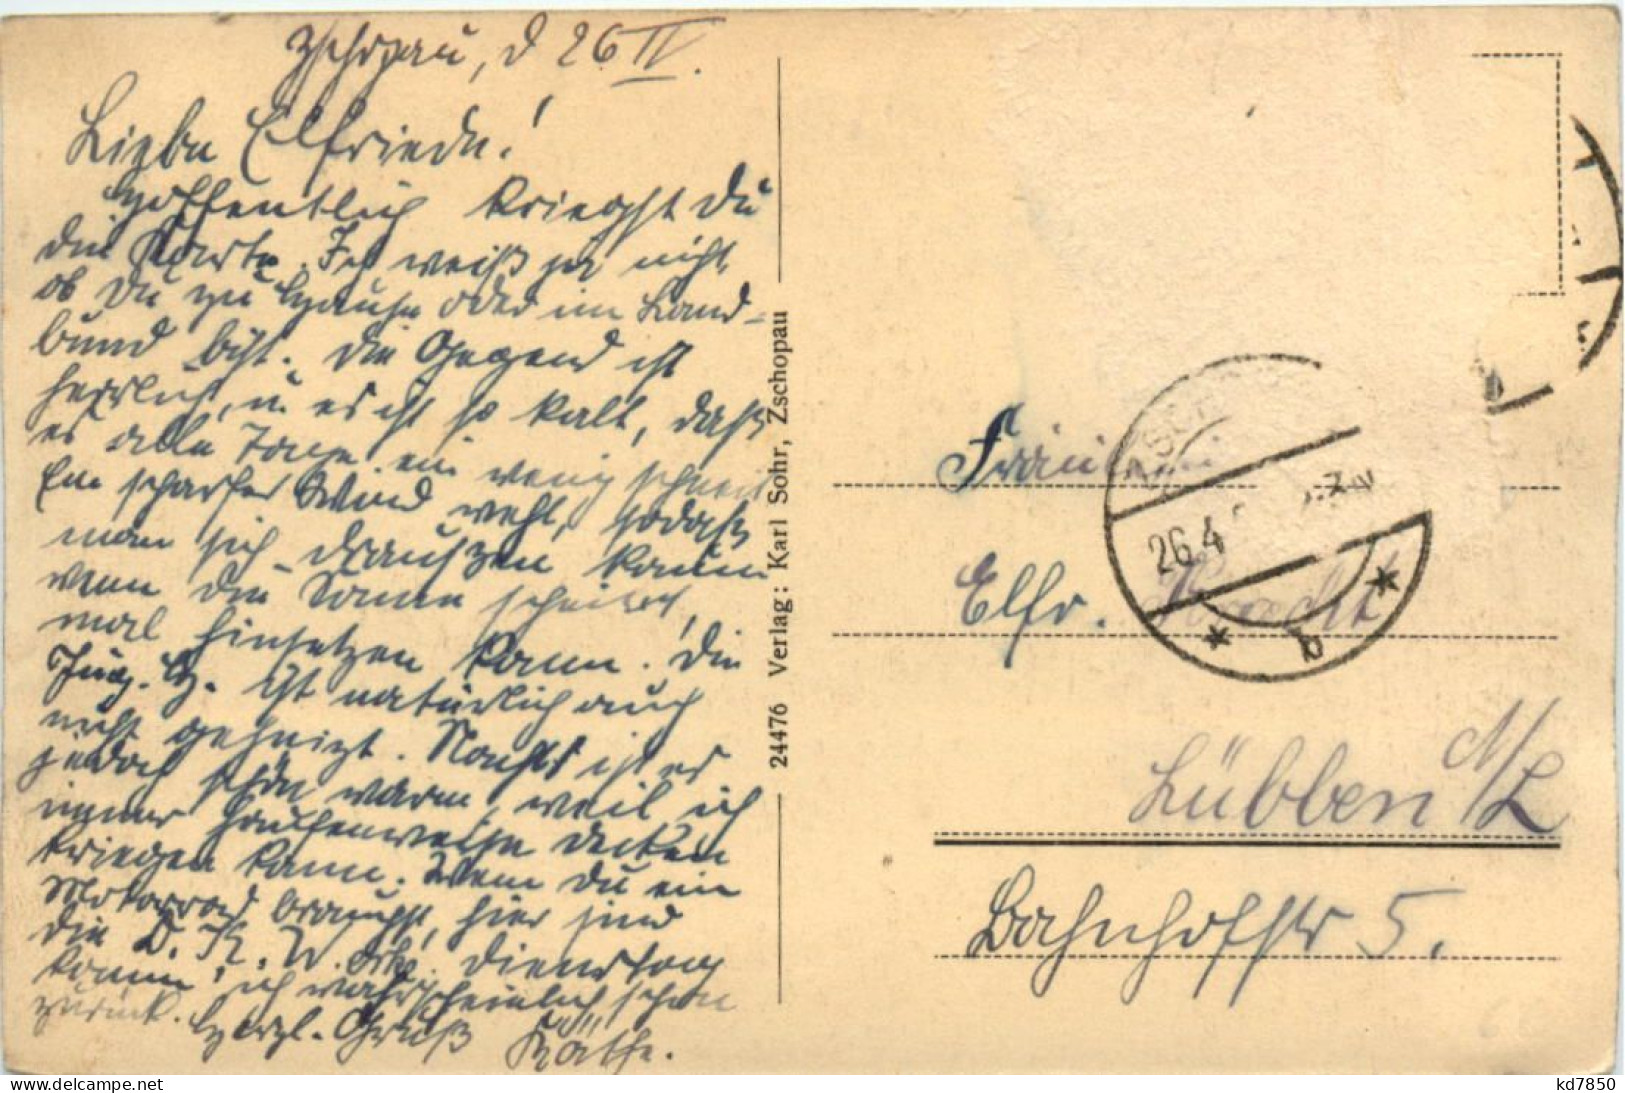 Zschopau, d 26 IV.
Liebe Elfriede!
Hoffentlich kriegst Du
die Karte. Ich weiß ja nicht,
ob Du zu Hause oder im Land-
bund bist. Die Gegend ist
herrlich, u. es ist so kalt, daß
es alle Tage ein wenig schneit
Ein scharfer Wind weht, sodaß
man sich draußen kaum
wenn die Sonne scheint,
mal hinsetzen kann. Die
Jug. H. ist natürlich auch
nicht geheizt. Nachts ist es
jedoch schön warm, weil ich
immer haufenweise Decken
kriegen kann. Wenn Du ein
Motorrad brauchst, hier sind
die D. K. W. Dienstag
komme ich wahrscheinlich schon
zurück. Herzl. Gruß Käthe.
24476 Verlag: Karl Sohr, Zschopau
26.4
b
Fräulein
Elfr.
Lübben N/L
Bahnhofstr 5.
kd7850